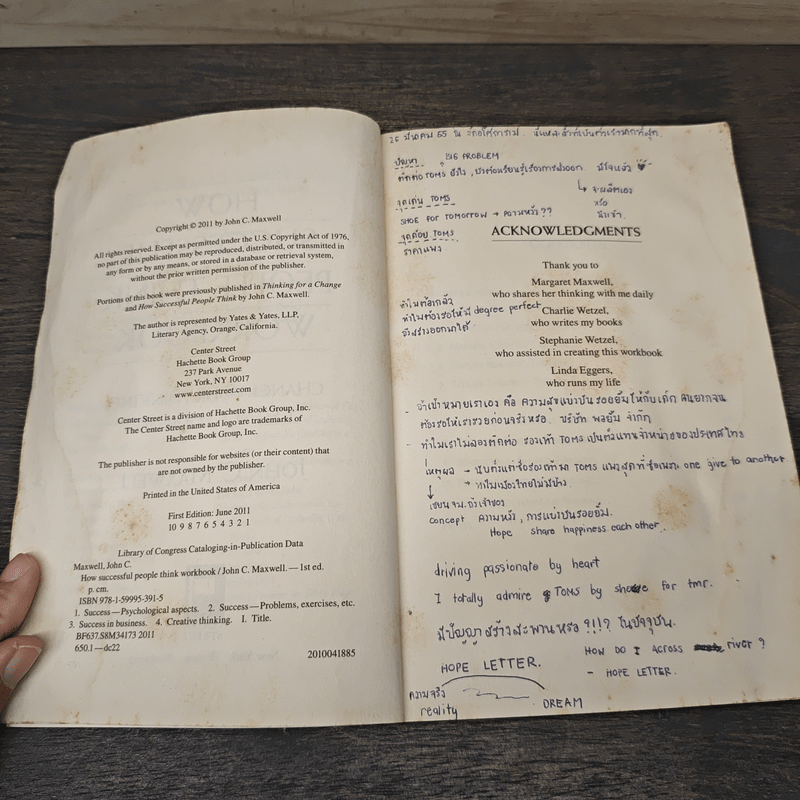 Copyright © 2011 by John C. Maxwell
All rights reserved. Except as permitted under the U.S. Copyright Act of 1976,
no part of this publication may be reproduced, distributed, or transmitted in
any form or by any means, or stored in a database or retrieval system,
without the prior written permission of the publisher.
Portions of this book were previously published in Thinking for a Change
and How Successful People Think by John C. Maxwell.
The author is represented by Yates & Yates, LLP,
Literary Agency, Orange, California.
Center Street
Hachette Book Group
237 Park Avenue
New York, NY 10017
www.centerstreet.com
Center Street is a division of Hachette Book Group, Inc.
The Center Street name and logo are trademarks of
Hachette Book Group, Inc.
The publisher is not responsible for websites (or their content) that
are not owned by the publisher.
Printed in the United States of America
First Edition: June 2011
10 9 8 7 6 5 4 3 2 1
Library of Congress Cataloging-in-Publication Data
Maxwell, John C.
How successful people think workbook / John C. Maxwell. — 1st ed.
p. cm.
ISBN 978-1-59995-391-5
1. Success—Psychological aspects. 2. Success—Problems, exercises, etc.
3. Success in business. 4. Creative thinking. I. Title.
BF637.S8M34173 2011
650.1—dc22
2010041885
26 มีนาคม 65
ปัญหา BIG PROBLEM
ติดต่อ TOMS ยังไง มีใจแล้ว
จะผลิตเอง
หรือ
นำเข้า
จุดเด่น TOMS
SHOE FOR TOMORROW → ความหวัง ??
จุดด้อย TOMS
ราคาแพง
ACKNOWLEDGMENTS
Thank you to
Margaret Maxwell,
who shares her thinking with me daily
Charlie Wetzel,
who writes my books
Stephanie Wetzel,
who assisted in creating this workbook
Linda Eggers,
who runs my life
ทำไมต้องกลัว
ทำไมต้องรอให้มี degree perfect
- ถ้าเป้าหมายเราเอง คือ ความสุขแบ่งปันรอยยิ้มให้กับเด็ก คนยากจน
ต้องรอให้เรารวยก่อนจริงหรือ. บริษัท พอยิ้ม จำกัด
- ทำไมเราไม่ลองติดต่อ รองเท้า TOMS เป็นตัวแทนจำหน่ายของประเทศไทย
เหตุผล → ซื้อรองเท้า TOMS one give to another
→ ทำไมเมืองไทยไม่มีบ้าง
concept ความหวัง, การแบ่งปันรอยยิ้ม.
Hope share happiness each other.
driving passionate by heart
I totally admire TOMS by shoe for tmr.
มีปัญญาสร้างสะพานหรือ ?!!? ในปัจจุบัน.
HOW DO I ACROSS river ?
- HOPE LETTER.
HOPE LETTER.
ความจริง
reality
DREAM